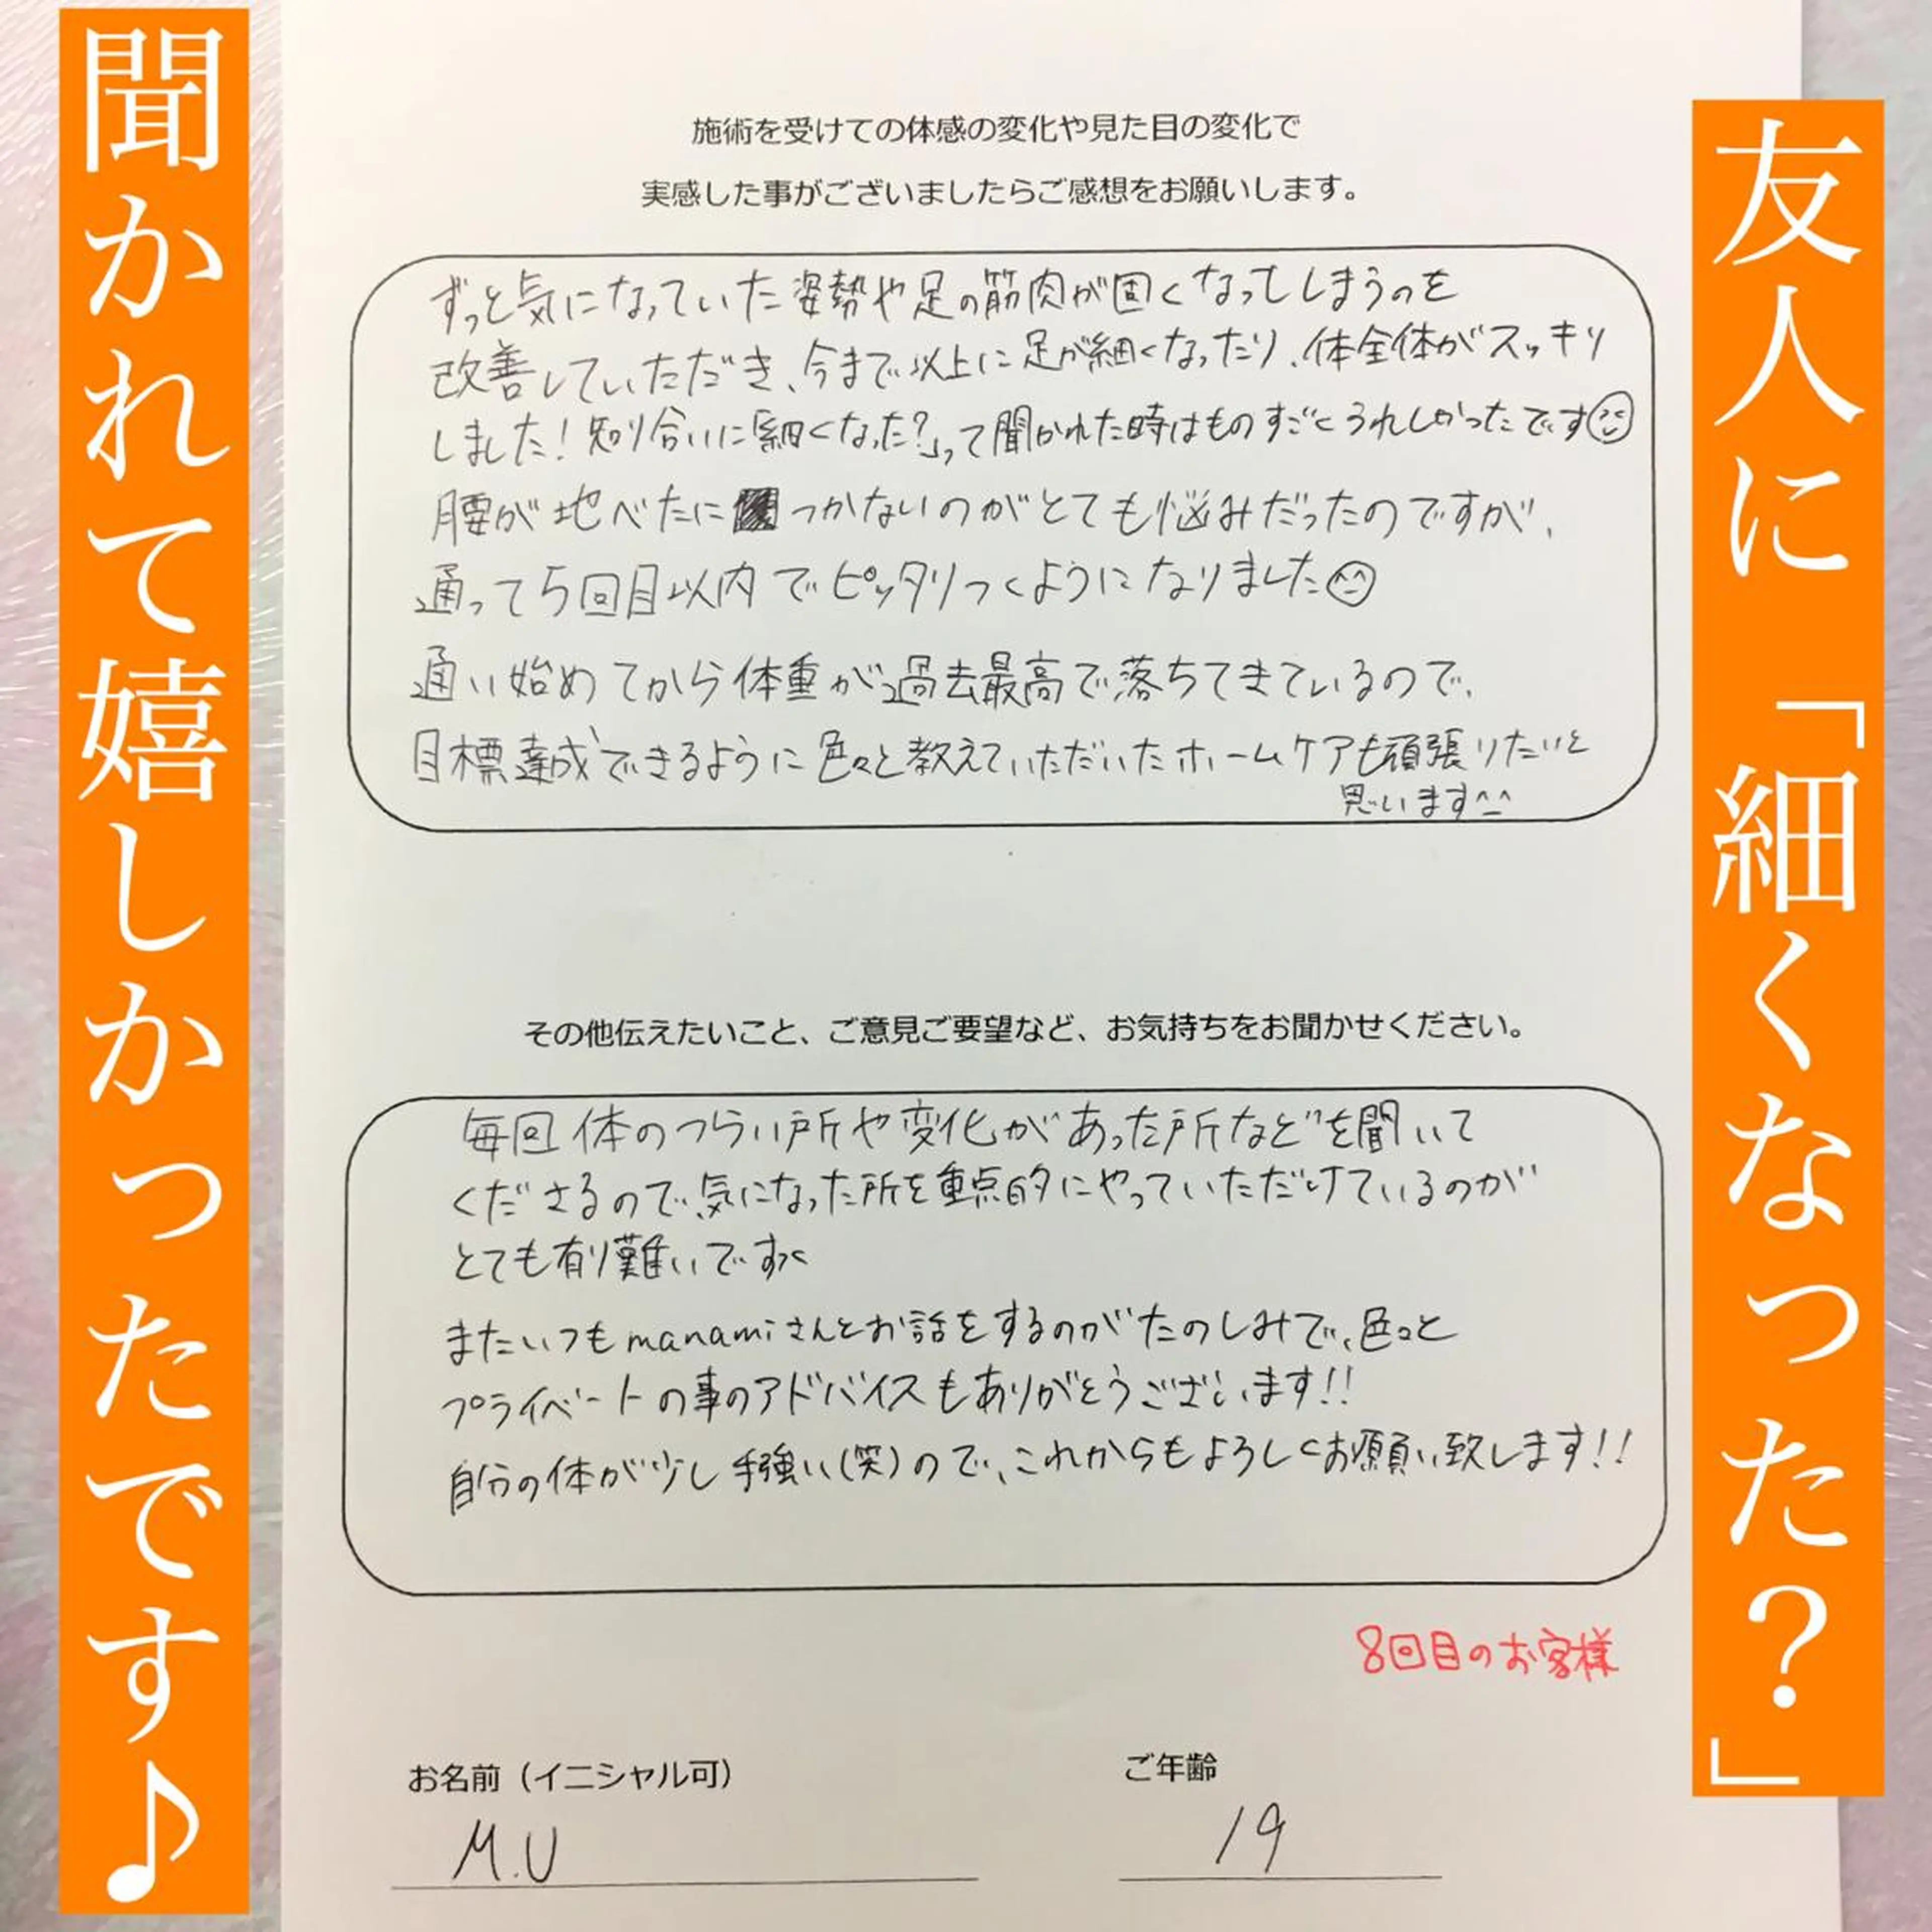 友人に「細くなった？」
聞かれて嬉しかったです♪
施術を受けての体感の変化や見た目の変化で
実感した事がございましたらご感想をお願いします。
ずっと気になっていた姿勢や足の筋肉が固くなってしまうのを
改善していただき、今まで以上に足が細くなったり、体全体がスッキリ
しました！知り合いに「細くなった？」って聞かれた時はものすごくうれしかったです
腰が地べたにつかないのがとても悩みだったのですが、
通って5回目以内でピッタリつくようになりました^^
通い始めてから体重が過去最高で落ちてきているので、
目標達成できるように色々と教えていただいたホームケアも頑張りたいと
思います^^
その他伝えたいこと、ご意見ご要望など、お気持ちをお聞かせください。
毎回体のつらい所や変化があった所などを聞いて
くださるので、気になった所を重点的にやっていただけているのが
とても有り難いです><
またいつもmanamiさんとお話をするのがたのしみで、色々と
プライベートの事のアドバイスもありがとうございます!!
自分の体が少し手強い(笑)ので、これからもよろしくお願い致します!!
8回目のお客様
お名前（イニシャル可）
ご年齢
M.U
19